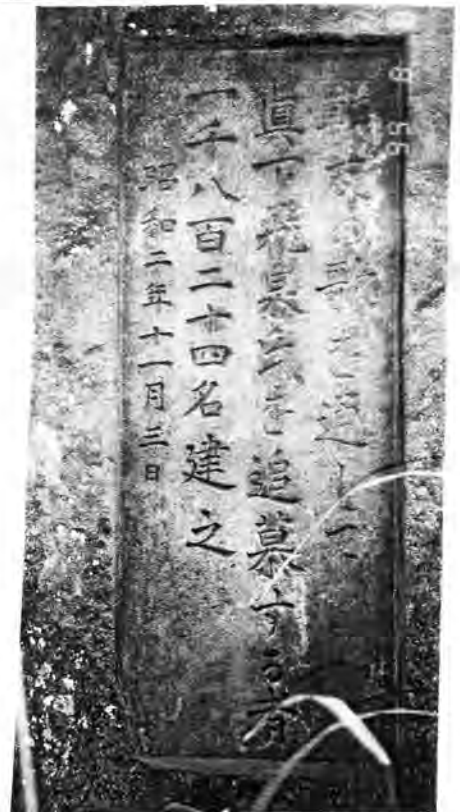 戰友の歌を通して
真下飛泉氏を追慕する者
一千八百二十四名建之
昭和二年十一月三日